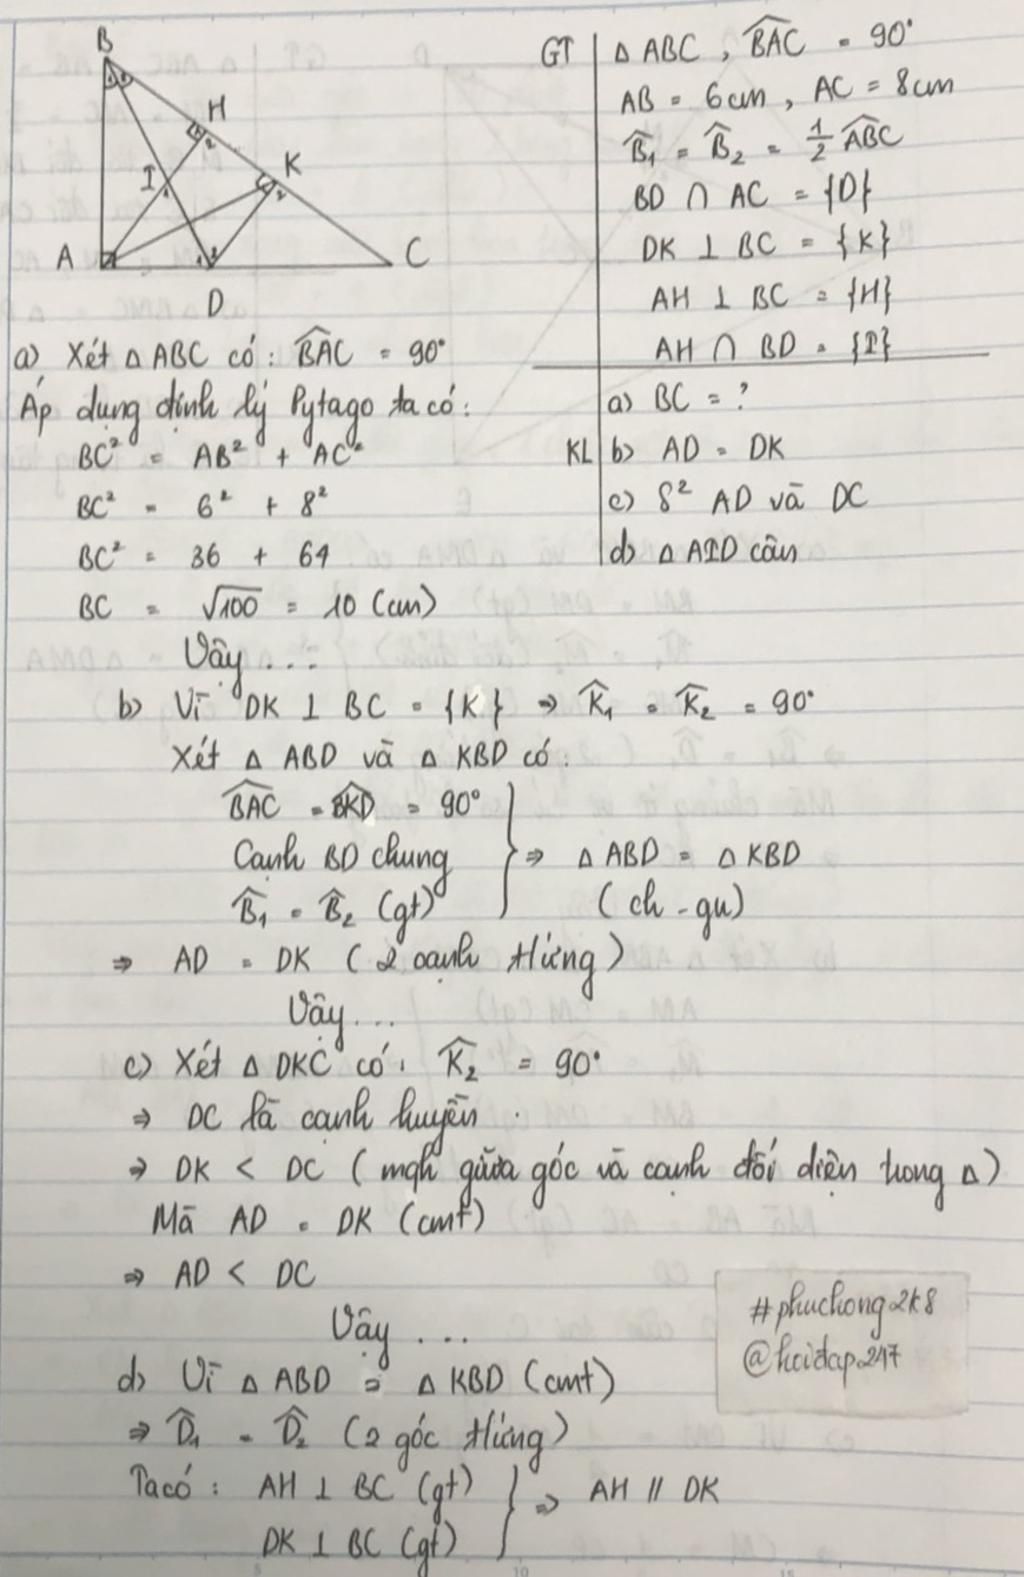 B
H
K
I
A
C
D
GT
Δ ABC, BAC = 90°
AB = 6cm, AC = 8cm
B̂₁ = B̂₂ = 1/2 ABC
BD ∩ AC = {D}
DK ⊥ BC = {K}
AH ⊥ BC = {H}
AH ∩ BD = {I}
KL
a) BC = ?
b) AD = DK
c) S² AD và DC
d) Δ AID cân
a) Xét Δ ABC có: BAC = 90°
Áp dụng định lý Pytago ta có:
BC² = AB² + AC²
BC² = 6² + 8²
BC² = 36 + 64
BC = √100 = 10 (cm)
Vậy ...
b) Vì DK ⊥ BC = {K} ⇒ K̂₁ = K̂₂ = 90°
Xét Δ ABD và Δ KBD có:
BAC = BKD = 90°
Cạnh BD chung } ⇒ Δ ABD = Δ KBD
B̂₁ = B̂₂ (gt) (ch - gn)
⇒ AD = DK (2 cạnh tứng)
Vậy...
c) Xét Δ DKC có: K̂₂ = 90°
⇒ DC là cạnh huyền
⇒ DK < DC (mqh giữa góc và cạnh đối diện trong Δ)
Mà AD = DK (cmt)
⇒ AD < DC
Vậy ...
#phuchong2k8
@hoidap247
d) Vì Δ ABD = Δ KBD (cmt)
⇒ D̂₁ = D̂₂ (2 góc tứng)
Ta có: AH ⊥ BC (gt) } ⇒ AH // DK
DK ⊥ BC (gt)